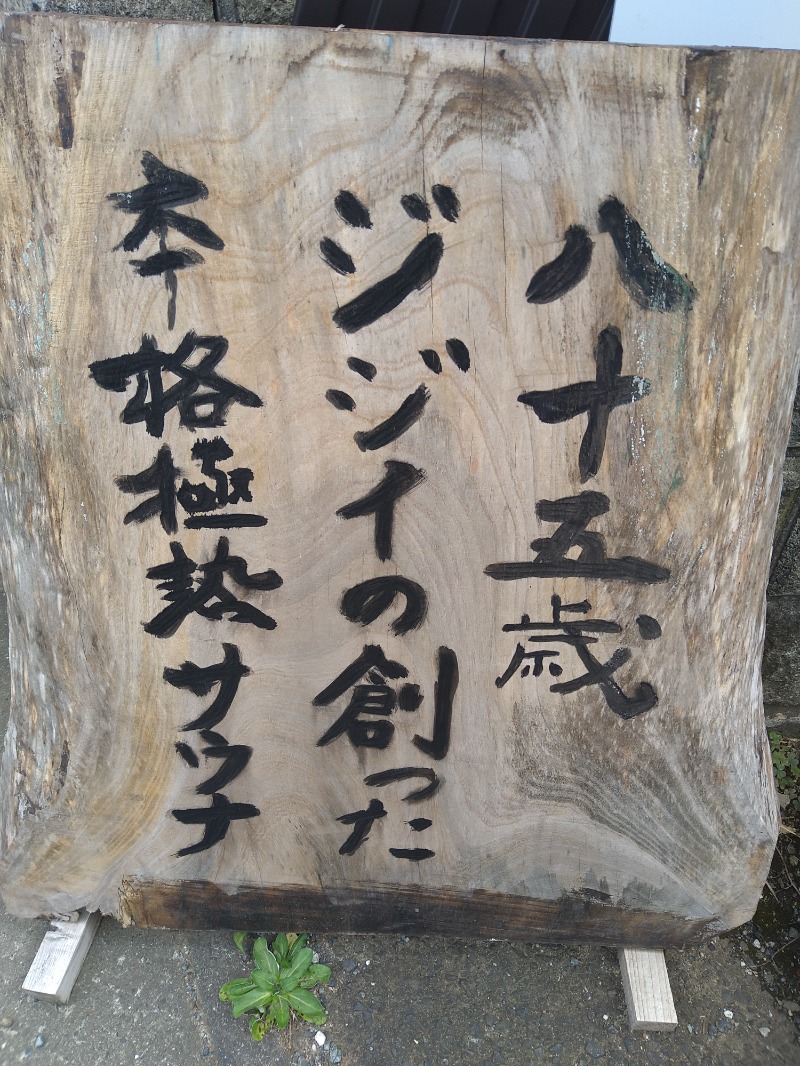 八十五歳
ジジイの創った
本格極熱サウナ